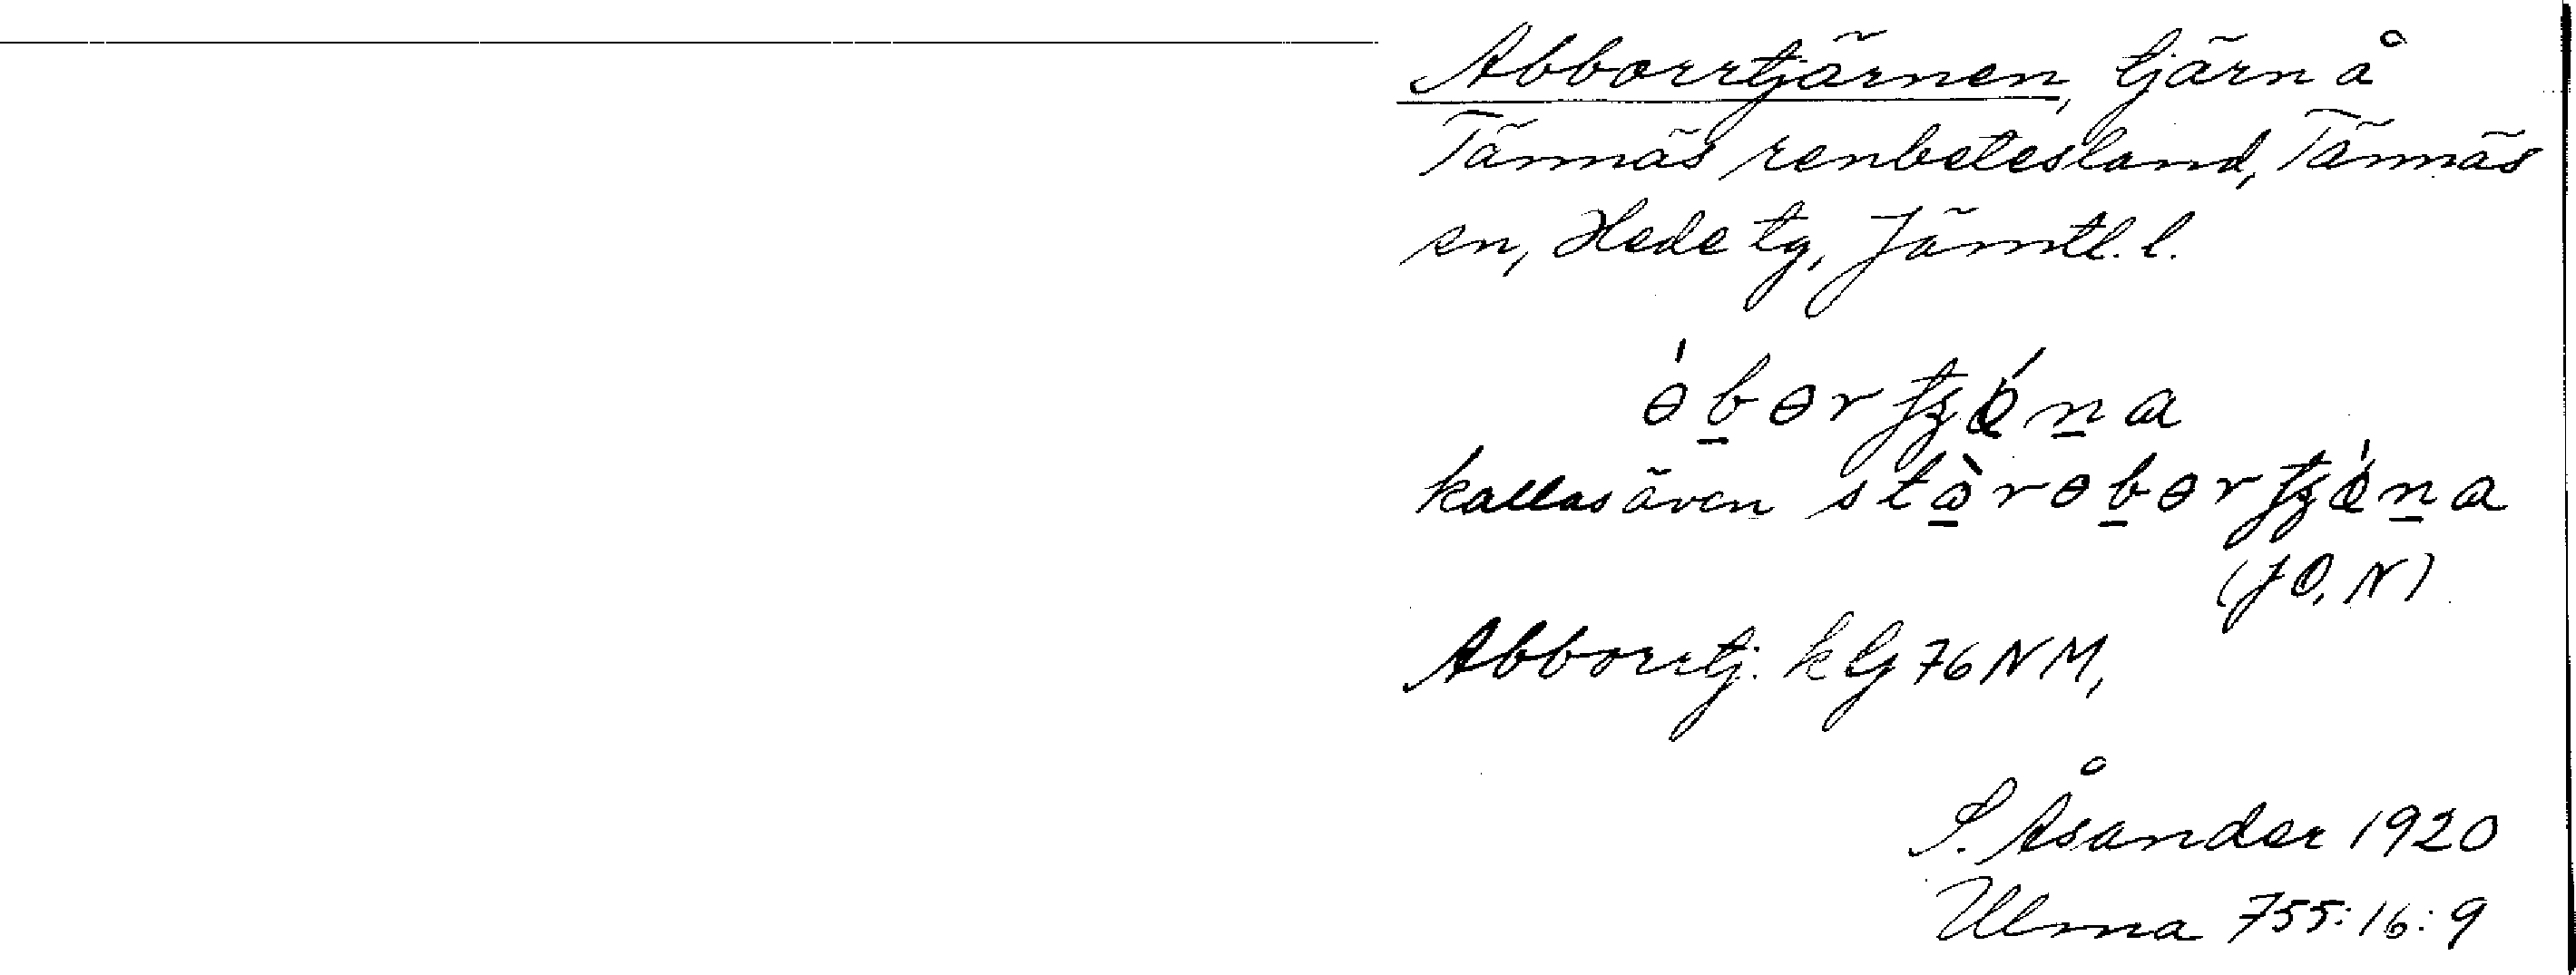 Abborrtjärnen, tjärn å
Tännäs renbetesland, Tännäs
sn, Hede tg, Jämtl. l.
kallas även
(JO, N)
Abborrtj. k G 76 NM,
S. Åsander 1920
Ulma 755:16:9